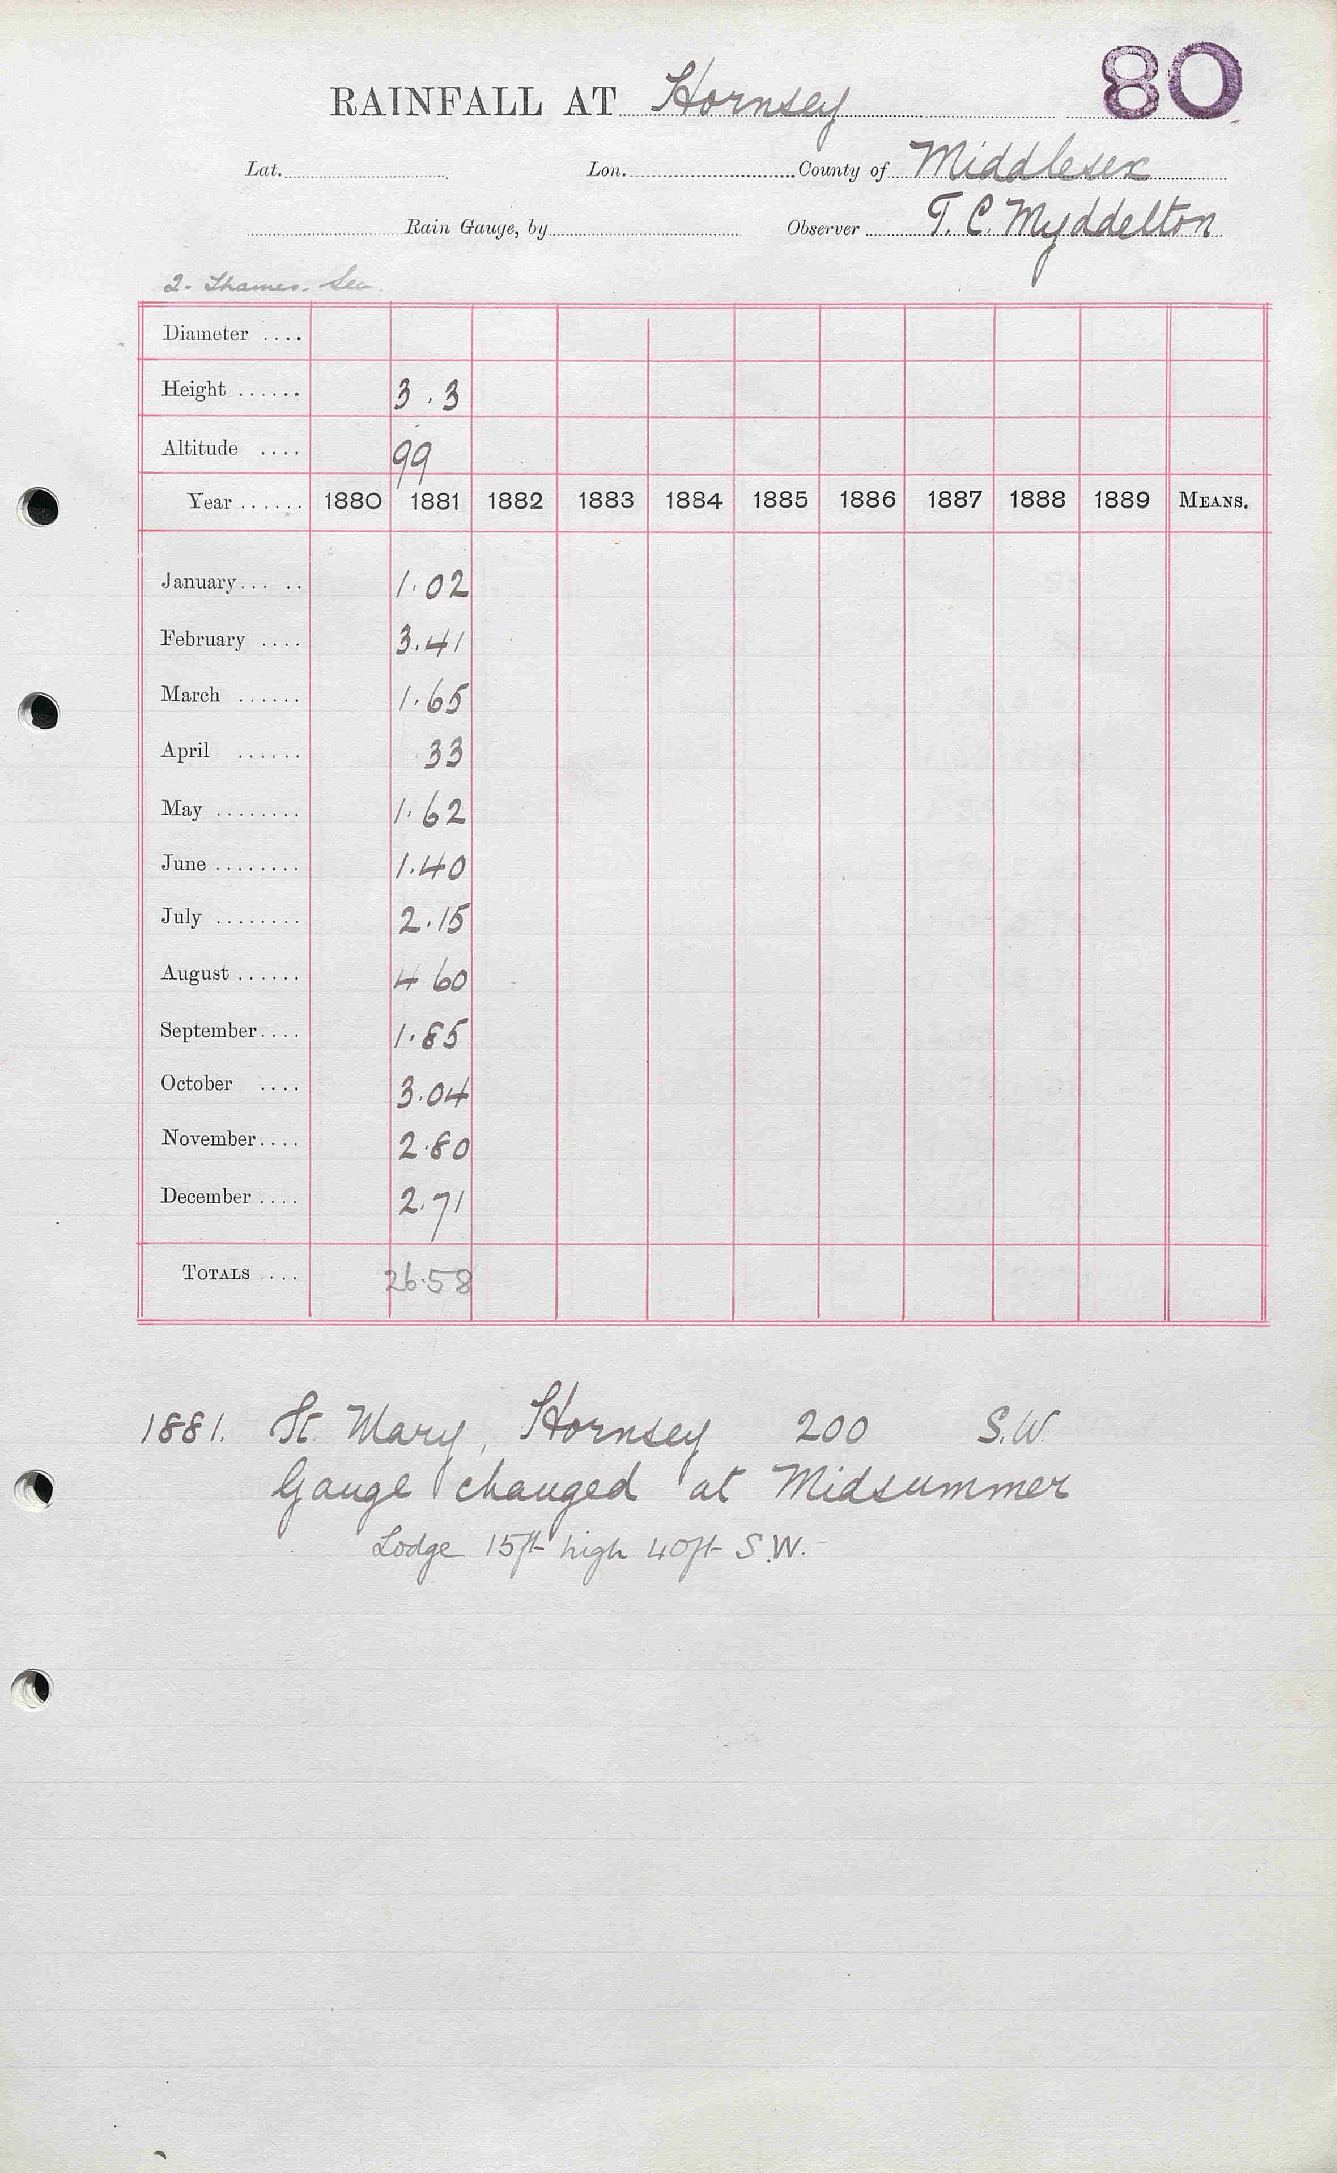 80
RAINFALL AT Hornsey
Lat. Lon. County of Middlesex
Rain Gauge, by Observer T. C. Myddelton
2. Thames. Lea.
Diameter ....
Height ...... 3.3
Altitude .... 99
Year ...... 1880 1881 1882 1883 1884 1885 1886 1887 1888 1889 MEANS.
January... .. 1.02
February .... 3.41
March ...... 1.65
April ...... .33
May ........ 1.62
June ........ 1.40
July ........ 2.15
August ...... 4 60
September.... 1.85
October .... 3.04
November.... 2.80
December .... 2.71
TOTALS .... 26.58
1881. St. Mary, Hornsey 200 S.W.
Gauge changed at Midsummer
Lodge 15ft high 40ft S.W.